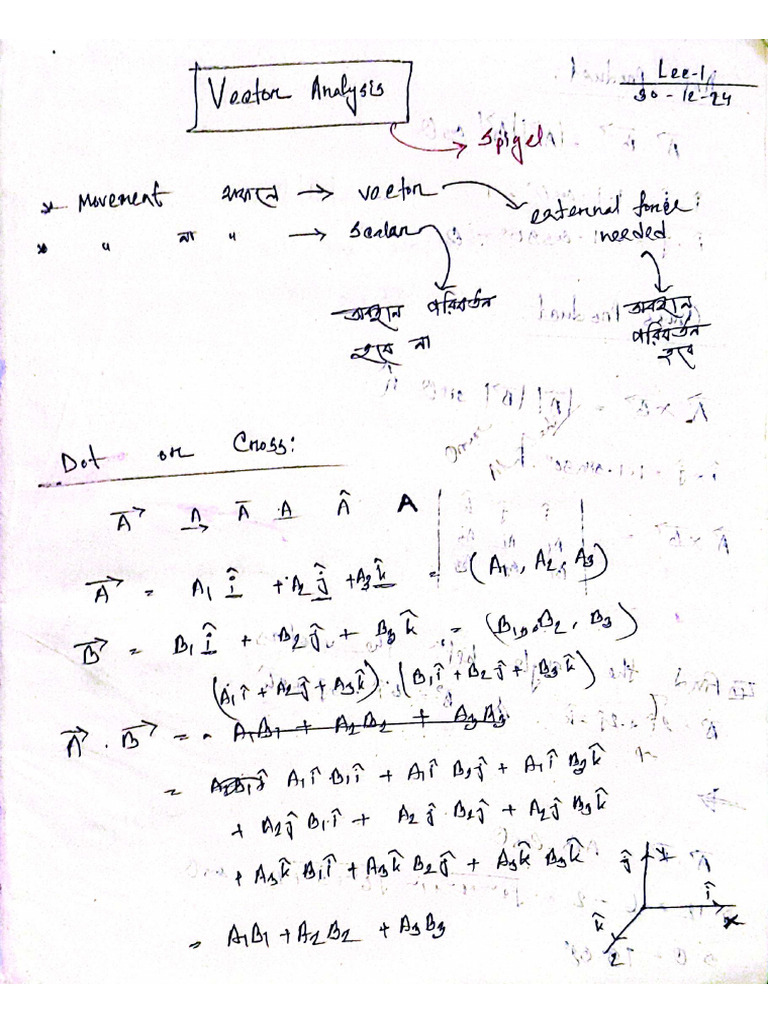 Lec-1
30-12-24
Vector Analysis
Spigel
* Movement থাকলে → vector → external force needed
* " না " → Scalar
অবস্থান পরিবর্তন হবে না
অবস্থান পরিবর্তন হবে
Dot or Cross:
A⃗ A Ā A Â A
A⃗ = A₁î + A₂ĵ + A₃k̂ = (A₁, A₂, A₃)
B⃗ = B₁î + B₂ĵ + B₃k̂ = (B₁, B₂, B₃)
(A₁î + A₂ĵ + A₃k̂) · (B₁î + B₂ĵ + B₃k̂)
A⃗ · B⃗ = A₁B₁ + A₂B₂ + A₃B₃
= A₁î B₁î + A₁î B₂ĵ + A₁î B₃k̂
+ A₂ĵ B₁î + A₂ĵ · B₂ĵ + A₂ĵ B₃k̂
+ A₃k̂ B₁î + A₃k̂ B₂ĵ + A₃k̂ B₃k̂
= A₁B₁ + A₂B₂ + A₃B₃
ĵ Y
î
X
k̂
Z